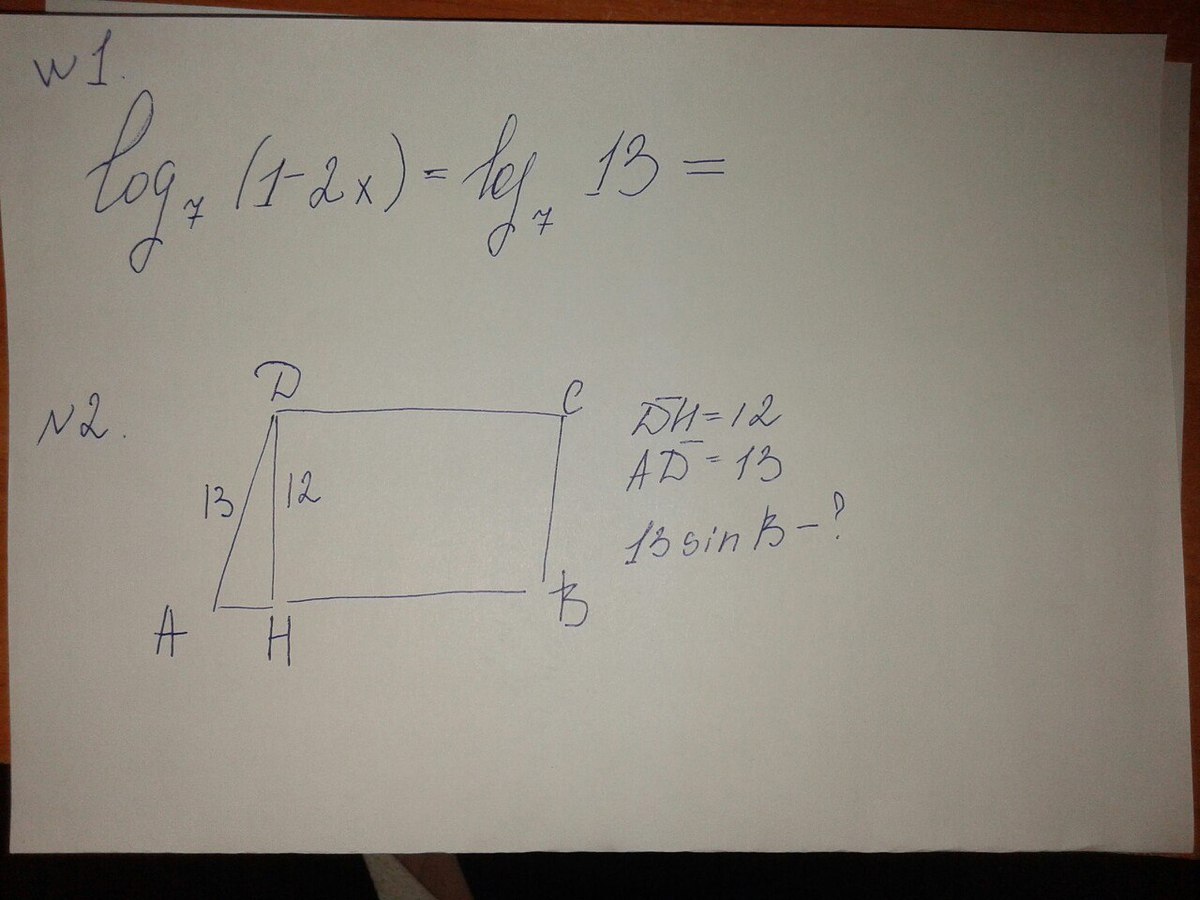 N1.
log₇ (1-2x) = log₇ 13 =
N2.
D
C
13
12
A
H
B
DH = 12
AD = 13
13 sin B - ?